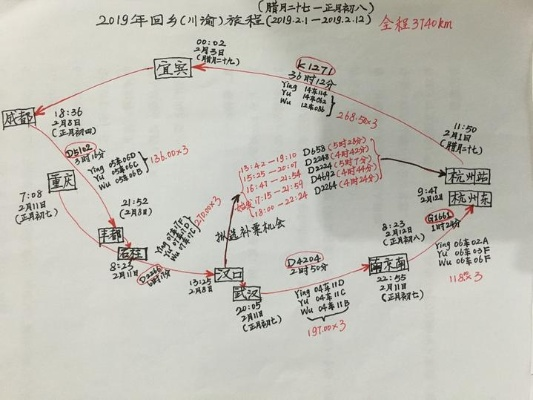 (腊月二十七—正月初八)
2019年回乡(川渝)旅程(2019.2.1—2019.2.12)
全程3740km
00:02
2月3日
(腊月二十九)
宜宾
K1271
36时12分
Ying 14车114
Yu 14车082
Wu 12车086
268.5×3
11:50
2月1日
(腊月二十七)
杭州站
成都
18:36
2月8日
(正月初四)
D5102
3时16分
Ying 05车06D
Yu 05车06C
Wu 05车06B
136.00×3
重庆
7:08
2月11日
(正月初七)
21:52
2月8日
丰都
石柱
8:23
2月11日
D2246
270.00×3
13:42—19:10 D658 (5时28分)
15:25—20:07 D2248 (4时42分)
16:47—21:54 D2224 (5时7分)
17:15—21:59 D4692 (4时44分)
18:00—22:24 D2264 (4时24分)
补票机会
汉口
13:25
2月8日
武汉
20:05
2月11日
(正月初七)
D4204
2时50分
Ying 04车11D
Yu 04车11C
Wu 04车11B
197.00×3
南京南
22:55
2月11日
(正月初七)
8:23
2月12日
(正月初八)
G1661
1时24分
9:47
2月12日
杭州东
Ying 06车02A
Yu 06车03F
Wu 06车06F
118.00×3